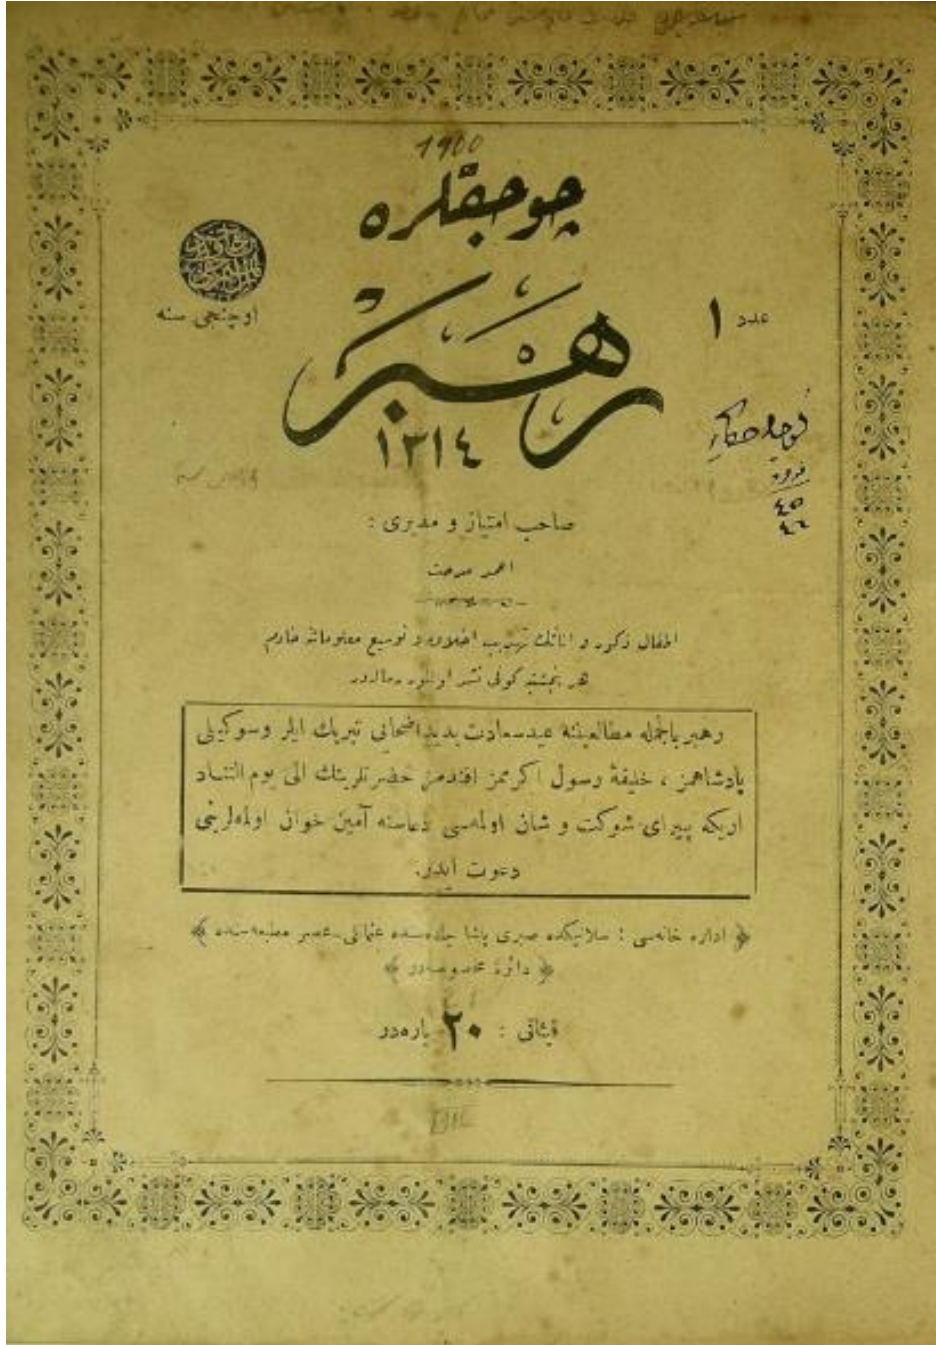 1900
چوجقلره
رهبر
١٣١٤
عدد ١
اوچنجی سنه
٤٥
٤٦
صاحب امتیاز و مدیری :
احمد مدحت
اطفال ذکور و اناثك تهذیب اخلاقنه و توسیع معلوماتنه خادم
هر پنجشنبه کونی نشر اولنور رساله‌در
رهبر بالجمله مطالعیننه عید سعادت بدید اضحایی تبریك ایلر و سوکیلی
پادشاهمز ، خلیفۀ رسول اکرممز افندمز حضرتلرینك الی یوم التناد
اریکه پیرای شوکت و شان اولمه‌سی دعاسنه آمین خوان اولمه‌لرینی
دعوت ایدر.
﴿ اداره خانه‌سی : سلانیکده صبری پاشا جاده‌سنده عثمانی-عصر مطبعه‌سنده ﴾
﴿ دائرۀ مخصوصه‌در ﴾
فیئاتی : ٢٠ پاره‌در